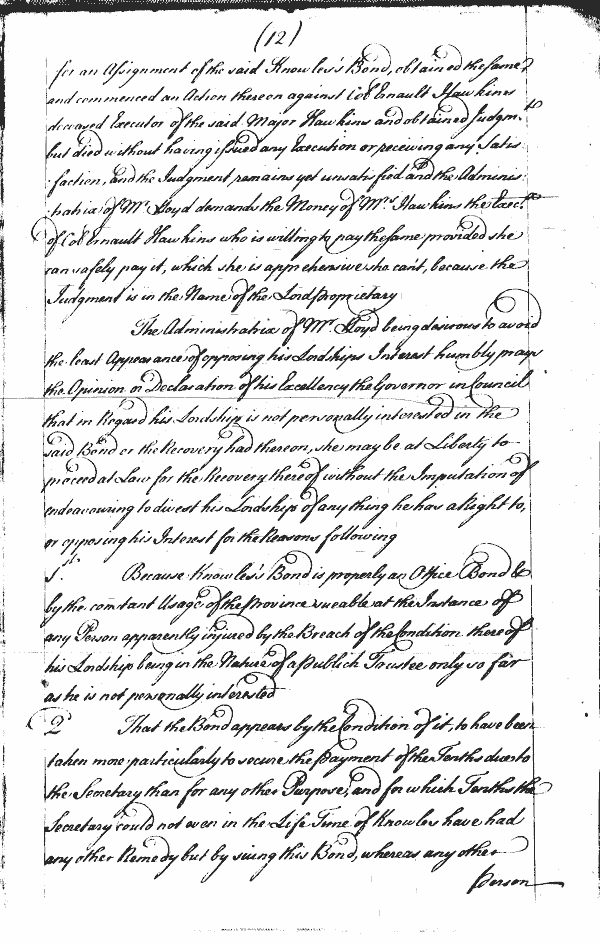 (12)
for an Assignment of the said Knowles's Bond, obtained the same
and commenced an Action thereon against Col Ernault Hawkins
deceased Executor of the said Major Hawkins and obtained Judgm.t
but died without having issued any Execution or receiving any Satis
faction, and the Judgment remains yet unsatisfied and the Adminis
tratrix of Mr Lloyd demands the Money of Mrs Hawkins the Exec.trx
of Col Ernault Hawkins who is willing to pay the same provided she
can safely pay it, which she is apprehensive she can't, because the
Judgment is in the Name of the Lord Proprietary
The Administratrix of Mr Lloyd being desirous to avoid
the least Appearance of opposing his Lordships Interest humbly prays
the Opinion or Declaration of his Excellency the Governor in Council
that in Regard his Lordship is not personally interested in the
said Bond or the Recovery had thereon, she may be at Liberty to
proceed at Law for the Recovery thereof without the Imputation of
endeavouring to divest his Lordship of any thing he has a Right to,
or opposing his Interest for the Reasons following
1.st Because Knowles's Bond is properly an Office Bond &
by the constant Usage of the Province sueable at the Instance of
any Person apparently injured by the Breach of the Condition thereof
his Lordship being in the Nature of a Publick Trustee only so far
as he is not personally interested
2d That the Bond appears by the Condition of it, to have been
taken more particularly to secure the Payment of the Tenths due to
the Secretary than for any other Purpose, and for which Tenths the
Secretary could not even in the Life Time of Knowles have had
any other Remedy but by suing this Bond, whereas any other
Person